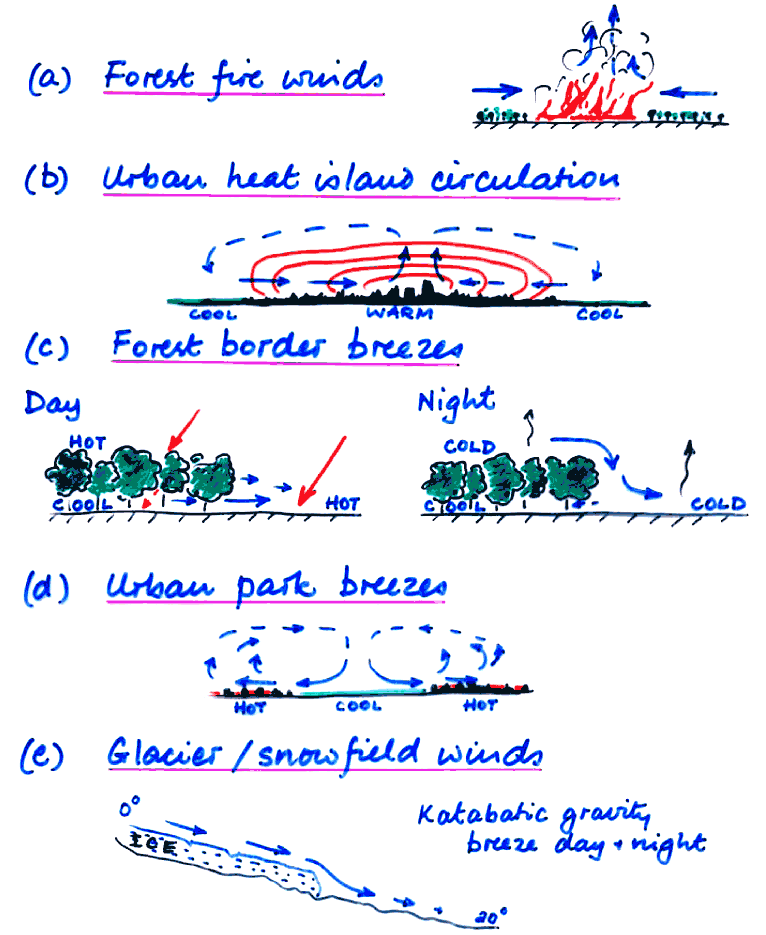 (a) Forest fire winds
(b) Urban heat island circulation
COOL WARM COOL
(c) Forest border breezes
Day Night
HOT COLD
COOL HOT COOL COLD
(d) Urban park breezes
HOT COOL HOT
(e) Glacier/snowfield winds
0°
ICE
Katabatic gravity
breeze day + night
20°